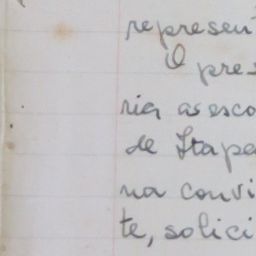 represen
O pres
ria as esco
de Itape
na convi
te, solici